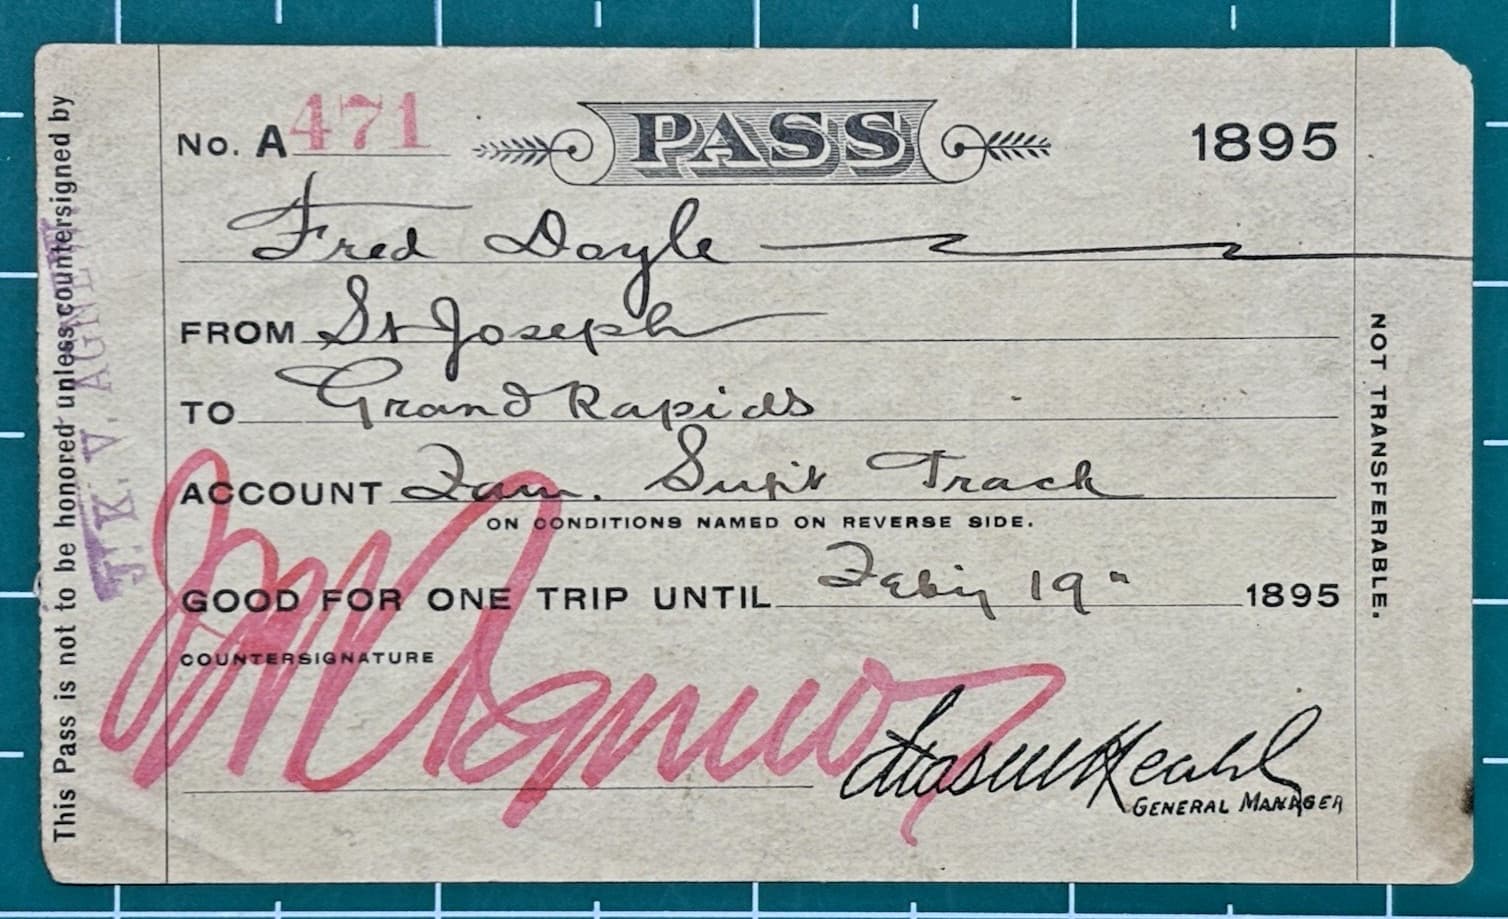 No. A 471 PASS 1895
Fred Doyle
FROM St Joseph
TO Grand Rapids
ACCOUNT Fam. Supt Track
ON CONDITIONS NAMED ON REVERSE SIDE.
GOOD FOR ONE TRIP UNTIL Feby 19" 1895
COUNTERSIGNATURE
J.K.V. Agnew
Chas M Heald
GENERAL MANAGER
This Pass is not to be honored unless countersigned by
J. K. V. AGNEW
NOT TRANSFERABLE.